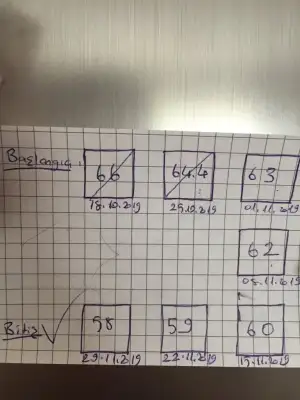 Başlangıç : 66 64.4 63
18.10.2019 25.10.2019 01.11.2019
62
08.11.2019
Bitiş 58 59 60
29.11.2019 22.11.2019 15.11.2019